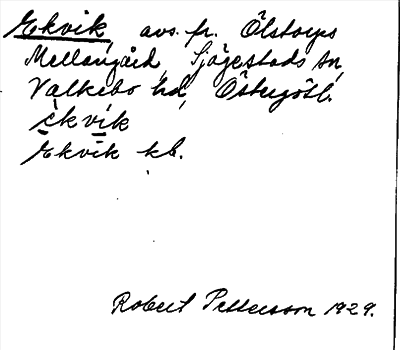 Ekvik, avs. fr. Ölstorps
Mellangård, Sjögestads sn,
Valkebo hd, Östergötl.
èkvik
Ekvik kb.
Robert Pettersson 1929.